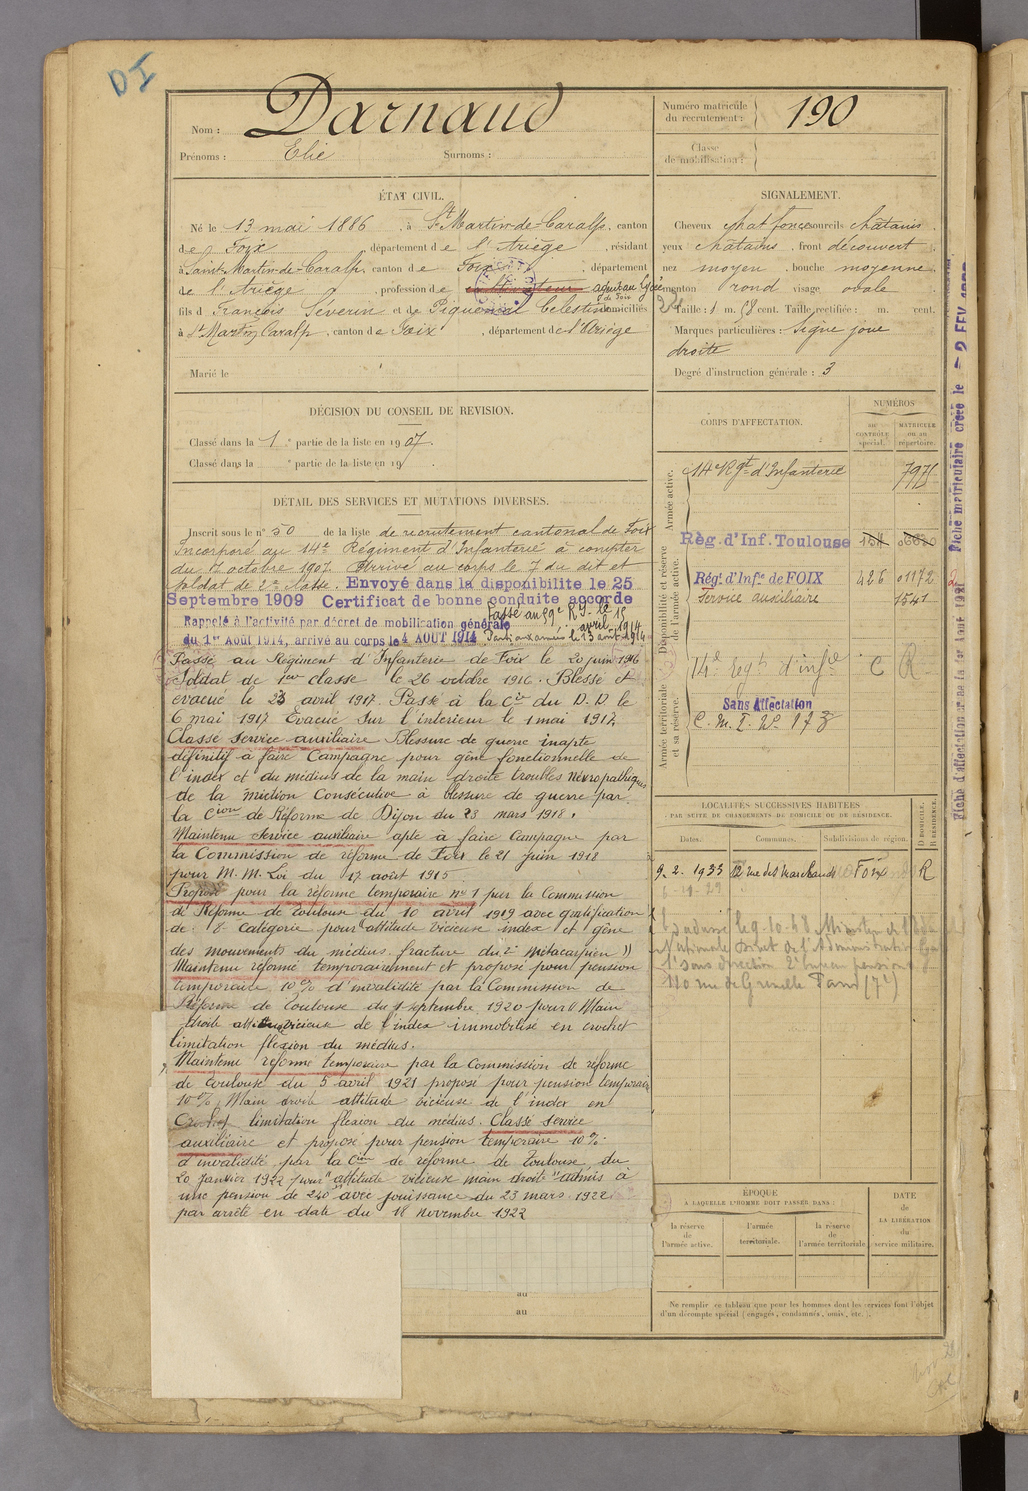 DI
Nom : Darnaud
Prénoms : Elie Surnoms :
Numéro matricule du recrutement : 190
Classe de mobilisation :
ÉTAT CIVIL.
Né le 13 mai 1886, à St Martin-de-Caralp, canton
de Foix département de l'Ariège, résidant
à Saint-Martin-de-Caralp, canton de Foix, département
de l'Ariège, profession de cultivateur
fils de François Séverin et de Célestine domiciliés
à St Martin Caralp, canton de Foix, département de l'Ariège
Marié le
SIGNALEMENT.
Cheveux chat foncé sourcils châtains
yeux châtains, front découvert
nez moyen, bouche moyenne
menton rond visage ovale
Taille : 1 m. 58 cent. Taille rectifiée : m. cent.
Marques particulières : Signe joue
droite
Degré d'instruction générale : 3
DÉCISION DU CONSEIL DE REVISION.
Classé dans la 1e partie de la liste en 1907.
Classé dans la e partie de la liste en 19
DÉTAIL DES SERVICES ET MUTATIONS DIVERSES.
Inscrit sous le n° 50 de la liste de recrutement cantonal de Foix
Incorporé au 14e Régiment d'Infanterie à compter
du 7 octobre 1907. Arrivé au corps le 7 du dit et
soldat de 2e classe. Envoyé dans la disponibilite le 25
Septembre 1909 Certificat de bonne conduite accorde
Passé au 59e R.I. le 15 avril 1914
Rappelé à l'activité par décret de mobilisation générale
du 1er Août 1914, arrivé au corps le 4 AOUT 1914 Parti aux armées le 13 août 1914
Passé au Régiment d'Infanterie de Foix le 20 juin 1916
Soldat de 1ere classe le 26 octobre 1916. Blessé et
évacué le 23 avril 1917. Passé à la Cie du D.D le
6 mai 1917 Évacué sur l'intérieur le 1 mai 1917.
Classé service auxiliaire Blessure de guerre inapte
définitif à faire Campagne pour gêne fonctionnelle de
l'index et du médius de la main droite troubles névropathiques
de la miction Consécutive à blessure de guerre par
la Cion de Réforme de Dijon du 23 mars 1918.
Maintenu service auxiliaire apte à faire Campagne par
la Commission de réforme de Foix le 21 juin 1918
pour M. M. Loi du 17 août 1915
Proposé pour la réforme temporaire n° 1 par la Commission
de Réforme de Toulouse du 10 avril 1919 avec gratification
de 8e catégorie pour "attitude vicieuse index et gêne
des mouvements du médius fracture du 2e métacarpien"
Maintenu réformé temporairement et proposé pour pension
temporaire 10% d'invalidité par la Commission de
Réforme de Toulouse du 1 septembre 1920 pour "Main
droite attitude vicieuse de l'index immobilisé en crochet
limitation flexion du médius.
Maintenu réformé temporaire par la Commission de réforme
de Toulouse du 5 avril 1921 proposé pour pension temporaire
10% Main droite attitude vicieuse de l'index en
Crochet limitation flexion du médius. Classé service
auxiliaire et proposé pour pension temporaire 10%
d'invalidité par la Cion de réforme de Toulouse du
20 janvier 1922 pour "attitude vicieuse main droite" admis à
une pension de 240f avec jouissance du 23 mars 1922
par arrêté en date du 18 novembre 1922
au
au
CORPS D'AFFECTATION.
NUMÉROS
au CONTRÔLE spécial.
MATRICULE ou au répertoire.
Armée active.
14e Rgt d'Infanterie 7975
Disponibilité et réserve de l'armée active.
Rég. d'Inf. Toulouse
Régt d'Infie de FOIX 426 01172
Service auxiliaire 1541
Armée territoriale et sa réserve.
14e regt d'infie C R
Sans Affectation
C. M. I. N° 173
LOCALITÉS SUCCESSIVES HABITÉES
PAR SUITE DE CHANGEMENTS DE DOMICILE OU DE RÉSIDENCE.
Dates. Communes. Subdivisions de région. D DOMICILE. R RÉSIDENCE.
9.2.1933 12 rue des Marchands Foix R
1re sous direction 2e bureau pensions
110 rue de Grenelle Paris (7e)
ÉPOQUE
À LAQUELLE L'HOMME DOIT PASSER DANS :
la réserve de l'armée active.
l'armée territoriale.
la réserve de l'armée territoriale.
DATE de LA LIBÉRATION du service militaire.
Ne remplir ce tableau que pour les hommes dont les services font l'objet
d'un décompte spécial (engagés, condamnés, omis, etc.).
Fiche matriculaire créée le